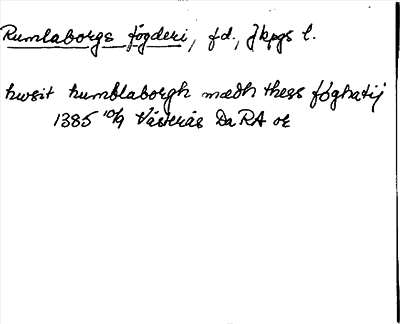 Rumlaborgs fögderi, f.d., Jkpgs l.
hwsit humblaborgh mædh thess føghatij
1385 10/9 Västerås Da RA or